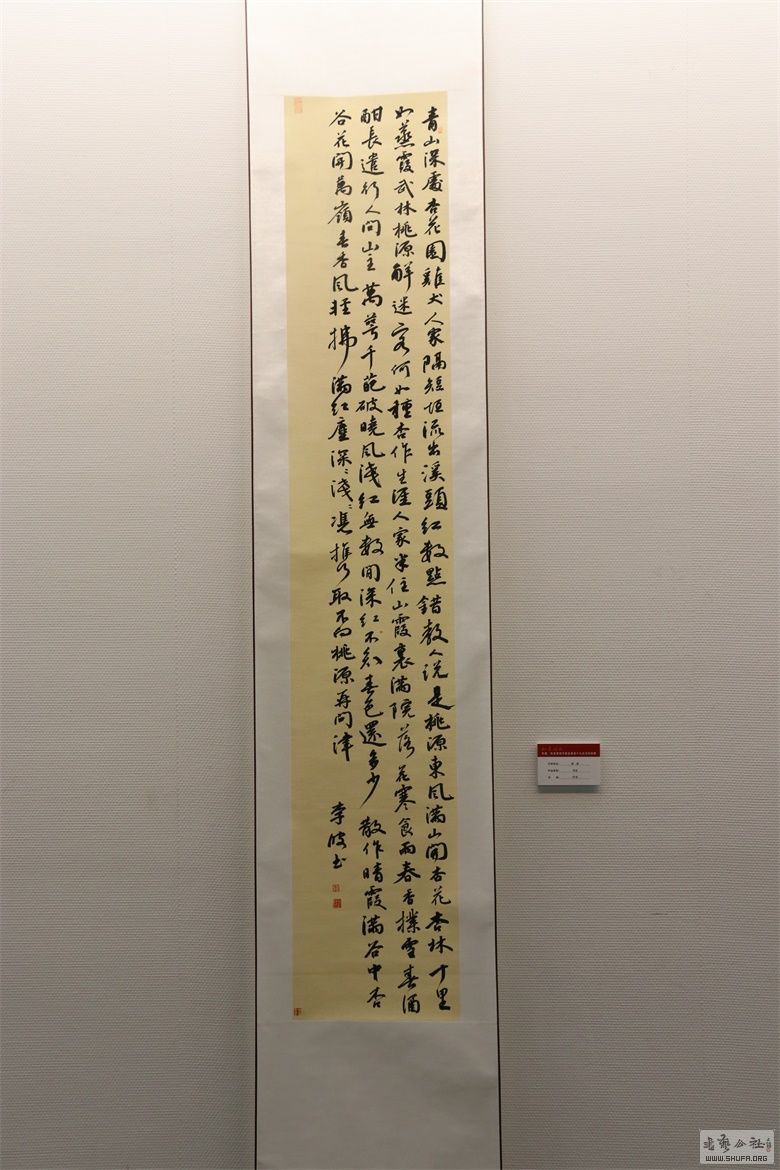 青山深處杏花園雞犬人家隔短垣流出溪頭紅數點錯教人說是桃源東風滿山開杏花杏林十里
如蒸霞武林桃源解迷客何如種杏作生涯人家半住山霞裏滿院落花寒食雨春香撲雪春酒
酣長遣行人問山主萬萼千葩破曉風淺紅無數間深紅不知春色還多少散作晴霞滿谷中杏
谷花開萬嶺春香風輕拂滿紅塵深〻淺〻憑推取不向桃源再問津
李波書
WWW.SHUFA.ORG